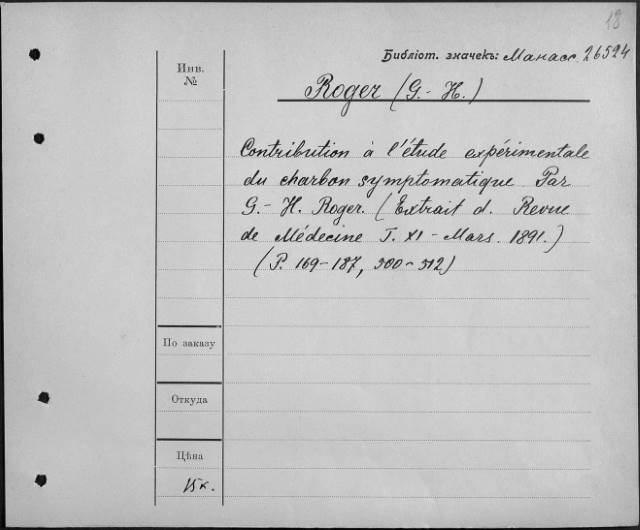 18
Библіот. значекъ: Манасс. 26524
Инв.
№
Roger (G.-H.)
Contribution à l'étude expérimentale
du charbon symptomatique. Par
G.-H. Roger. (Extrait d. Revue
de Médecine T. XI - Mars. 1891.)
(P. 169-187, 300-312)
По заказу
Откуда
Цѣна
15 к.